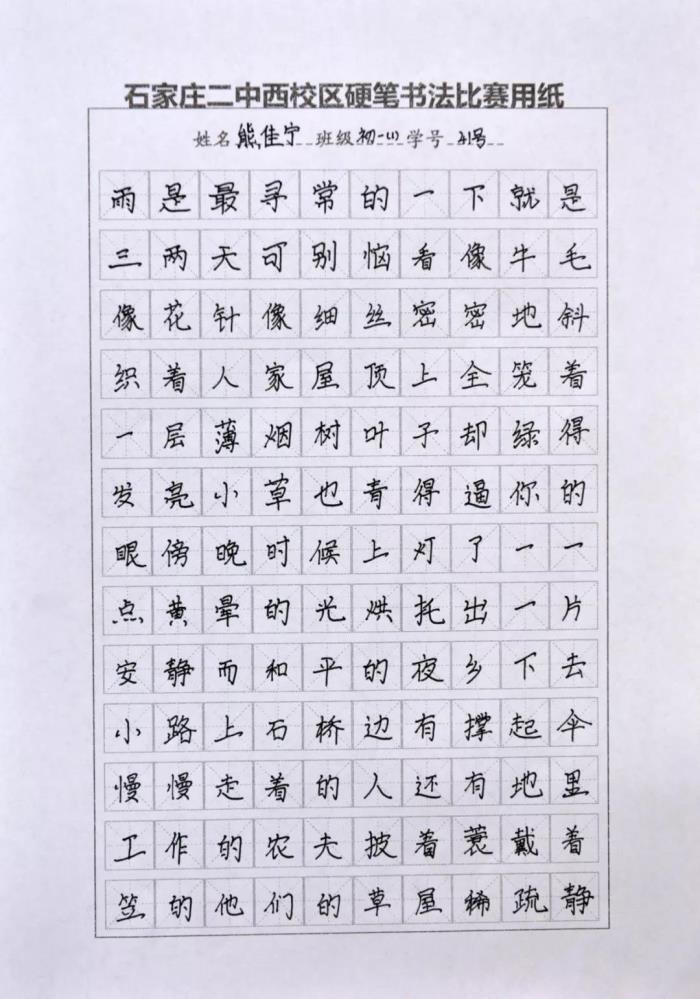 石家庄二中西校区硬笔书法比赛用纸
姓名 熊佳宁 班级 初一(1) 学号 41号
雨是最寻常的一下就是
三两天可别恼看像牛毛
像花针像细丝密密地斜
织着人家屋顶上全笼着
一层薄烟树叶子却绿得
发亮小草也青得逼你的
眼傍晚时候上灯了一一
点黄晕的光烘托出一片
安静而和平的夜乡下去
小路上石桥边有撑起伞
慢慢走着的人还有地里
工作的农夫披着蓑戴着
笠的他们的草屋稀疏静